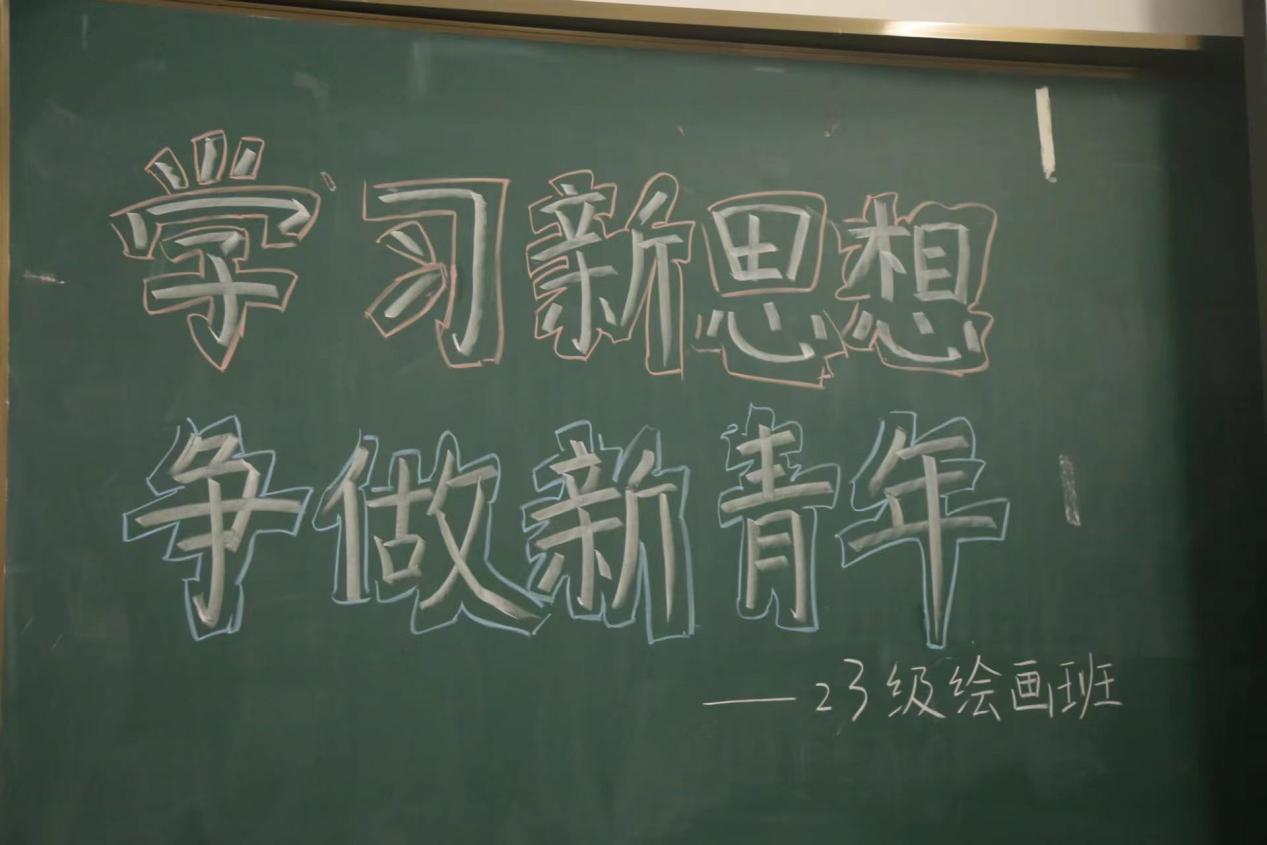 学习新思想
争做新青年
——23级绘画班